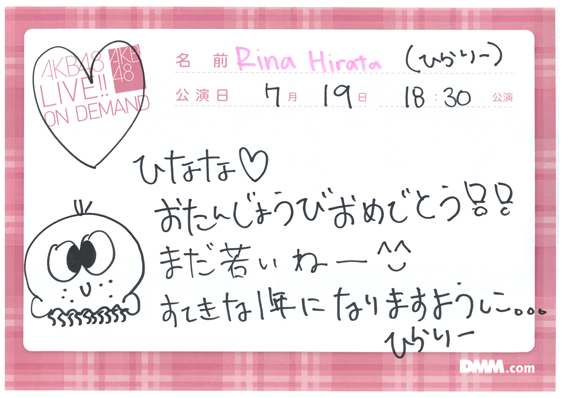 AKB48
LIVE!!
ON DEMAND
AKB
48
名前 Rina Hirata (ひらりー)
公演日 7月 19日 18:30 公演
ひなな♡
おたんじょうびおめでとう!!
まだ若いねー^^
すてきな1年になりますように...
ひらりー
DMM.com